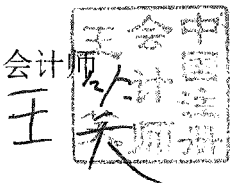 会计师
中国注册
会计师
王
王